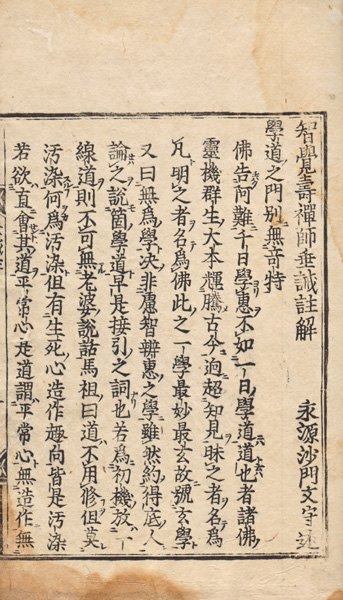 智覺壽禪師垂誡註解　永源沙門文守述
學道之門別無奇特
佛告阿難千日學惠不如一日學道道也者諸佛
靈機群生大本輝騰古今逈超知見昧之者名爲
凡明之者名爲佛此之一學最妙最玄故號玄學
又曰無爲學决非慮智辨惠之學雖然約得底人
論之說箇學道早是接引之詞也若爲初機放一
線道則不可無老婆說話馬祖曰道不用修但莫
汚染何爲汚染但有生死心造作趣向皆是汚染
若欲直會其道平常心是道謂平常心無造作無